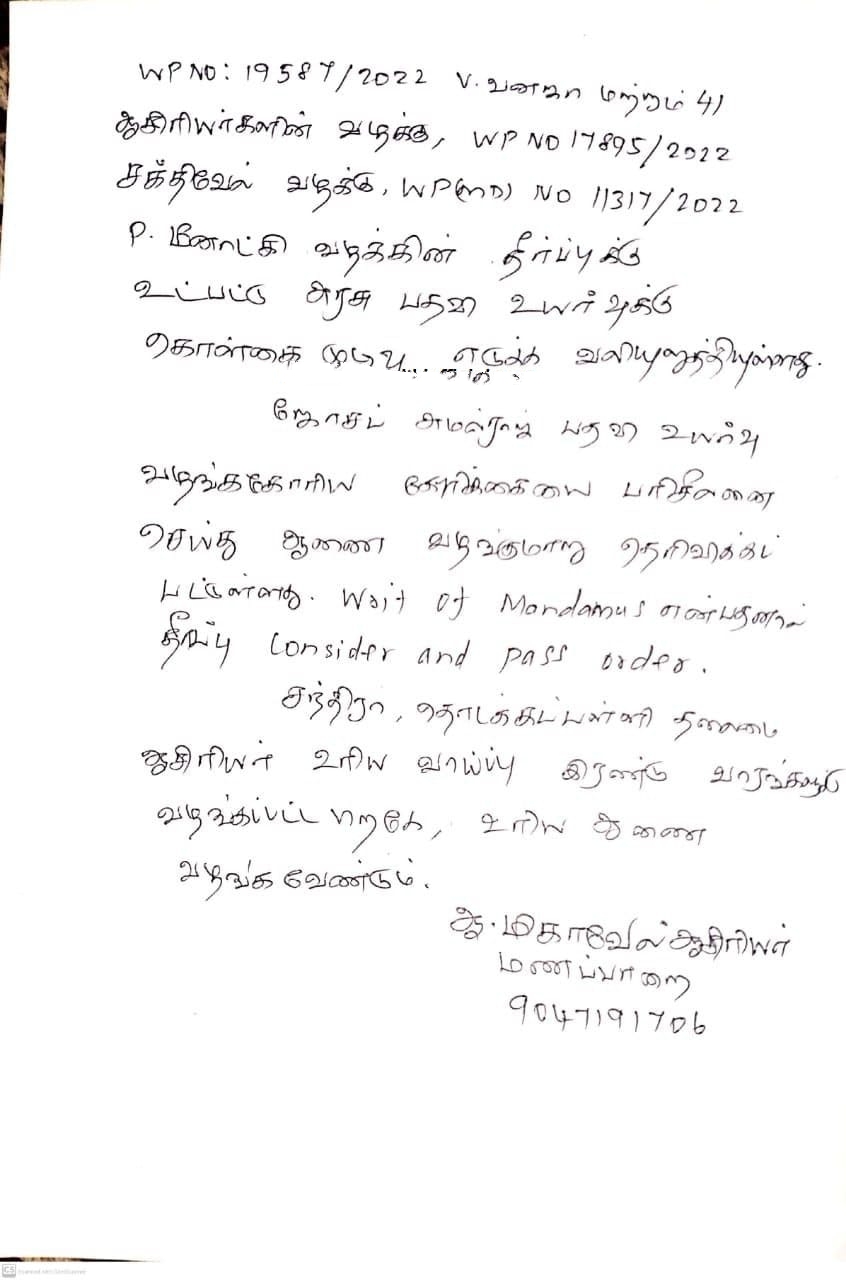 WP NO: 19587/2022 V. வனஜா மற்றும் 41
ஆசிரியர்களின் வழக்கு, WP NO 17895/2022
சக்திவேல் வழக்கு, WP(MD) NO 11317/2022
P. மீனாட்சி வழக்கின் தீர்ப்புக்கு
உட்பட்டு அரசு பதவி உயர்வுக்கு
கொள்கை முடிவு எடுக்க வலியுறுத்தியுள்ளது.
ஜோசப் அமல்ராஜ் பதவி உயர்வு
வழங்ககோரிய கோரிக்கையை பரிசீலனை
செய்து ஆணை வழங்குமாறு தெரிவிக்கப்
பட்டுள்ளது. Writ of Mandamus என்பதனால்
தீர்ப்பு Consider and pass order.
சந்திரா, தொடக்கப்பள்ளி தலைமை
ஆசிரியர் உரிய வாய்ப்பு இரண்டு வாரங்கள்
வழங்கப்பட்ட பிறகே, உரிய ஆணை
வழங்க வேண்டும்.
ஆ. மிகாவேல் ஆசிரியர்
மணப்பாறை
9047191706
CS